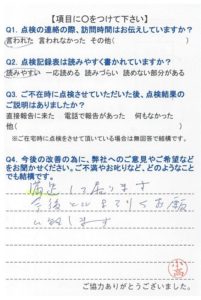 【項目に○をつけて下さい】
Q1. 点検の連絡の際、訪問時間はお伝えしていますか?
言われた 言われなかった その他( )
Q2. 点検記録表は読みやすく書かれていますか?
読みやすい 一応読める 読みづらい 読めない部分がある
Q3. ご不在時に点検させていただいた後、点検結果の
ご説明はありましたか?
直接報告に来た 電話で報告があった 何もなかった
他( )
※ご在宅時に点検をさせて頂いている場合は無回答で結構です。
Q4. 今後の改善の為に、弊社へのご意見やご希望など
をお聞かせください。ご不満やお叱りなど、どのようなこと
でも結構です。
満足しております
今後ともよろしくお願
い致します
小高
ご協力ありがとうございました。